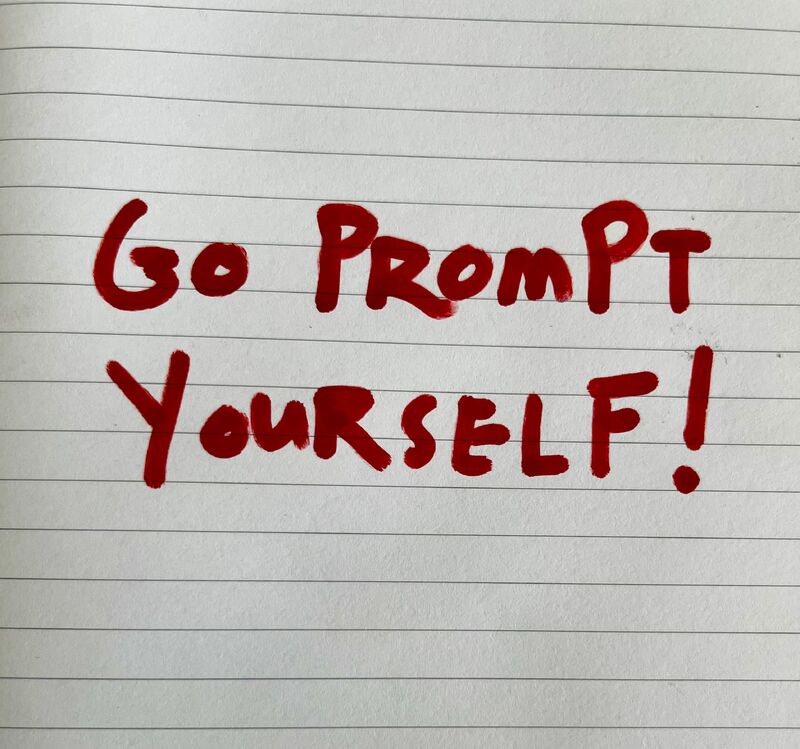 Go PRomPT
YouRSELF!